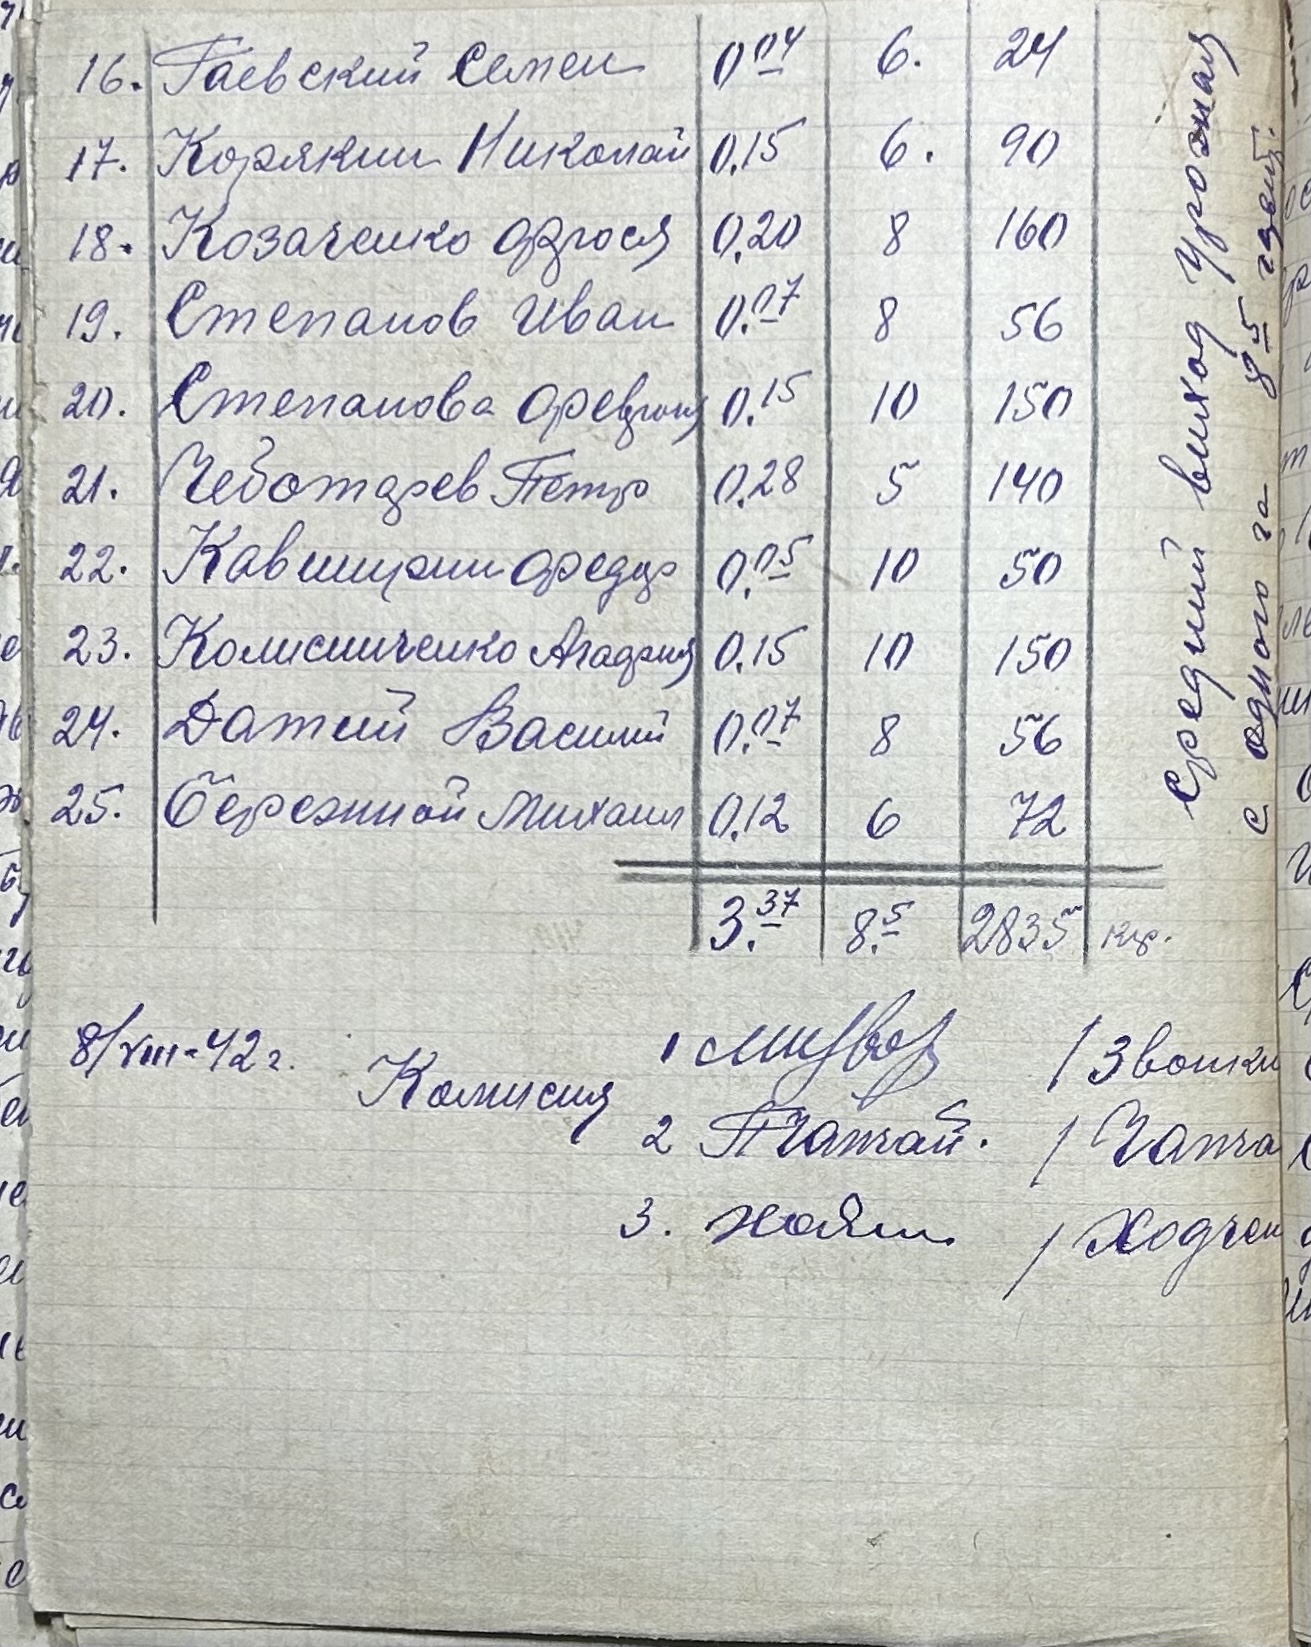 16. Гаевский Семен 0,04 6. 24
17. Корякин Николай 0.15 6. 90
18. Козаченко Фрося 0.20 8 160
19. Степанов Иван 0.07 8 56
20. Степанова 0.15 10 150
21. Чеботарев Петр 0.28 5 140
22. Федор 0.05 10 50
23. Колисниченко 0.15 10 150
24. Датий Василий 0.07 8 56
25. Бережной Михаил 0.12 6 72
3.37 8.5 2835 кгр.
Средний виход урожая
с одного га 8,5 цент.
8/VIII-42 г.
Комисия
1 / Звонки
2 Чапчай. / Чапча
3. / Ходчен